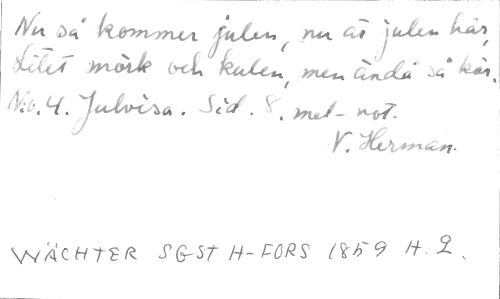 Nu så kommer julen, nu är julen här,
Litet mörk och kulen, men ändå så kär.
N:o. 4. Julvisa. Sid. 8. mel-not.
V. Herman.
WÄCHTER SGST H-FORS 1859 H. 2.